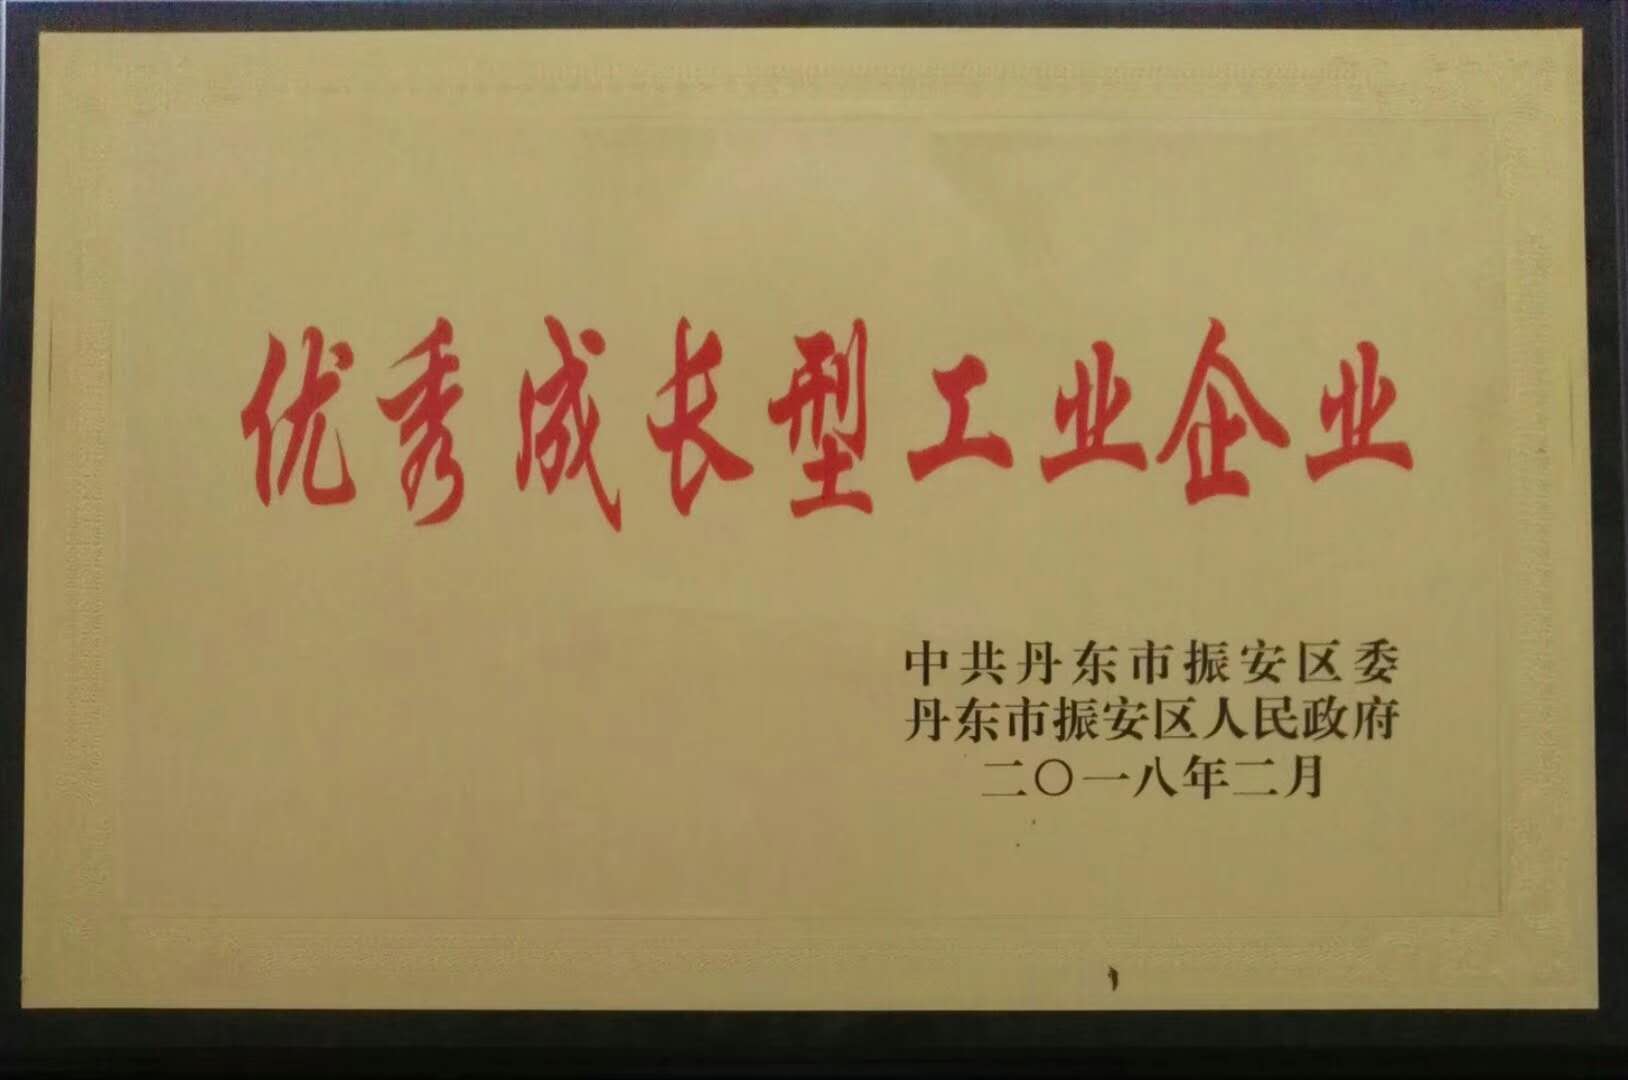 优秀成长型工业企业
中共丹东市振安区委
丹东市振安区人民政府
二〇一八年二月